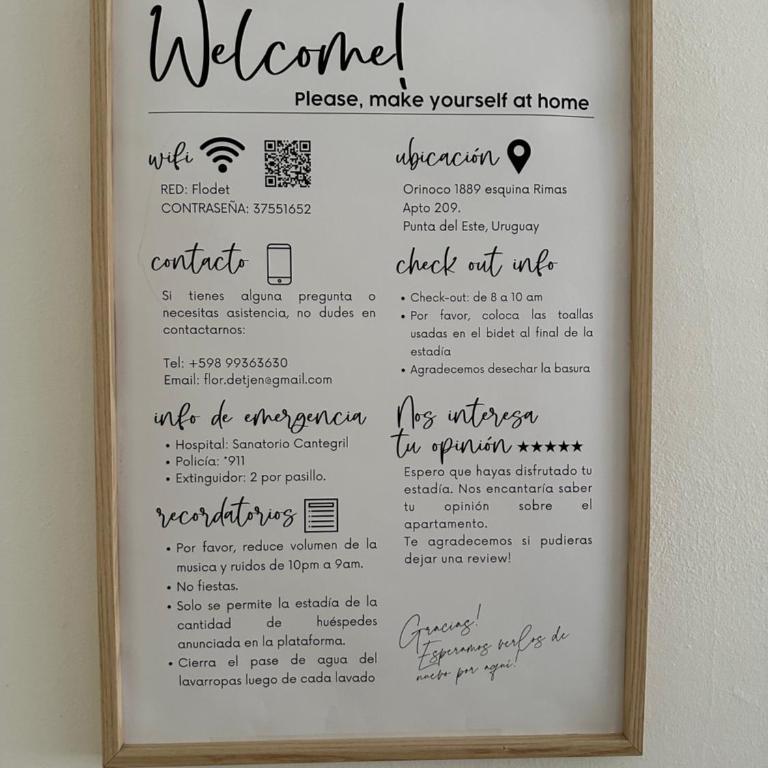 Welcome!
Please, make yourself at home
wifi
RED: Flodet
CONTRASEÑA: 37551652
contacto
Si tienes alguna pregunta o
necesitas asistencia, no dudes en
contactarnos:
Tel: +598 99363630
Email: flor.detjen@gmail.com
info de emergencia
• Hospital: Sanatorio Cantegril
• Policía: *911
• Extinguidor: 2 por pasillo.
recordatorios
• Por favor, reduce volumen de la
musica y ruidos de 10pm a 9am.
• No fiestas.
• Solo se permite la estadía de la
cantidad de huéspedes
anunciada en la plataforma.
• Cierra el pase de agua del
lavarropas luego de cada lavado
ubicación
Orinoco 1889 esquina Rimas
Apto 209.
Punta del Este, Uruguay
check out info
• Check-out: de 8 a 10 am
• Por favor, coloca las toallas
usadas en el bidet al final de la
estadía
• Agradecemos desechar la basura
Nos interesa
tu opinión ★★★★★
Espero que hayas disfrutado tu
estadía. Nos encantaría saber
tu opinión sobre el
apartamento.
Te agradecemos si pudieras
dejar una review!
Gracias!
Esperamos verlos de
nuevo por aquí!